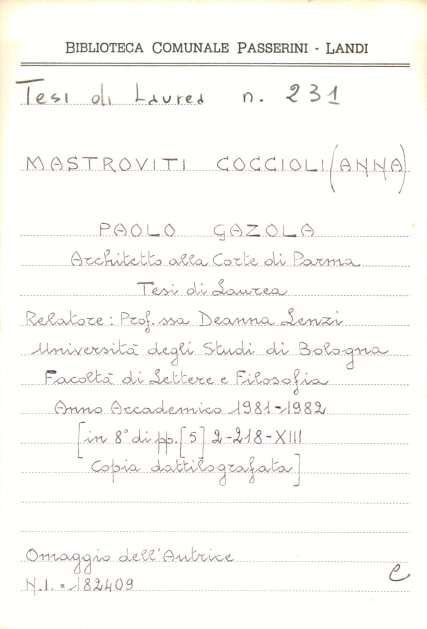 BIBLIOTECA COMUNALE PASSERINI - LANDI
Tesi di Laurea n. 231
MASTROVITI COCCIOLI (ANNA)
PAOLO GAZOLA
Architetto alla Corte di Parma
Tesi di Laurea
Relatore: Prof.ssa Deanna Lenzi
Università degli Studi di Bologna
Facoltà di Lettere e Filosofia
Anno Accademico 1981-1982
[in 8° di pp. [5] 2-218-XIII
Copia dattilografata]
Omaggio dell'Autrice
N.I. = 182409
e